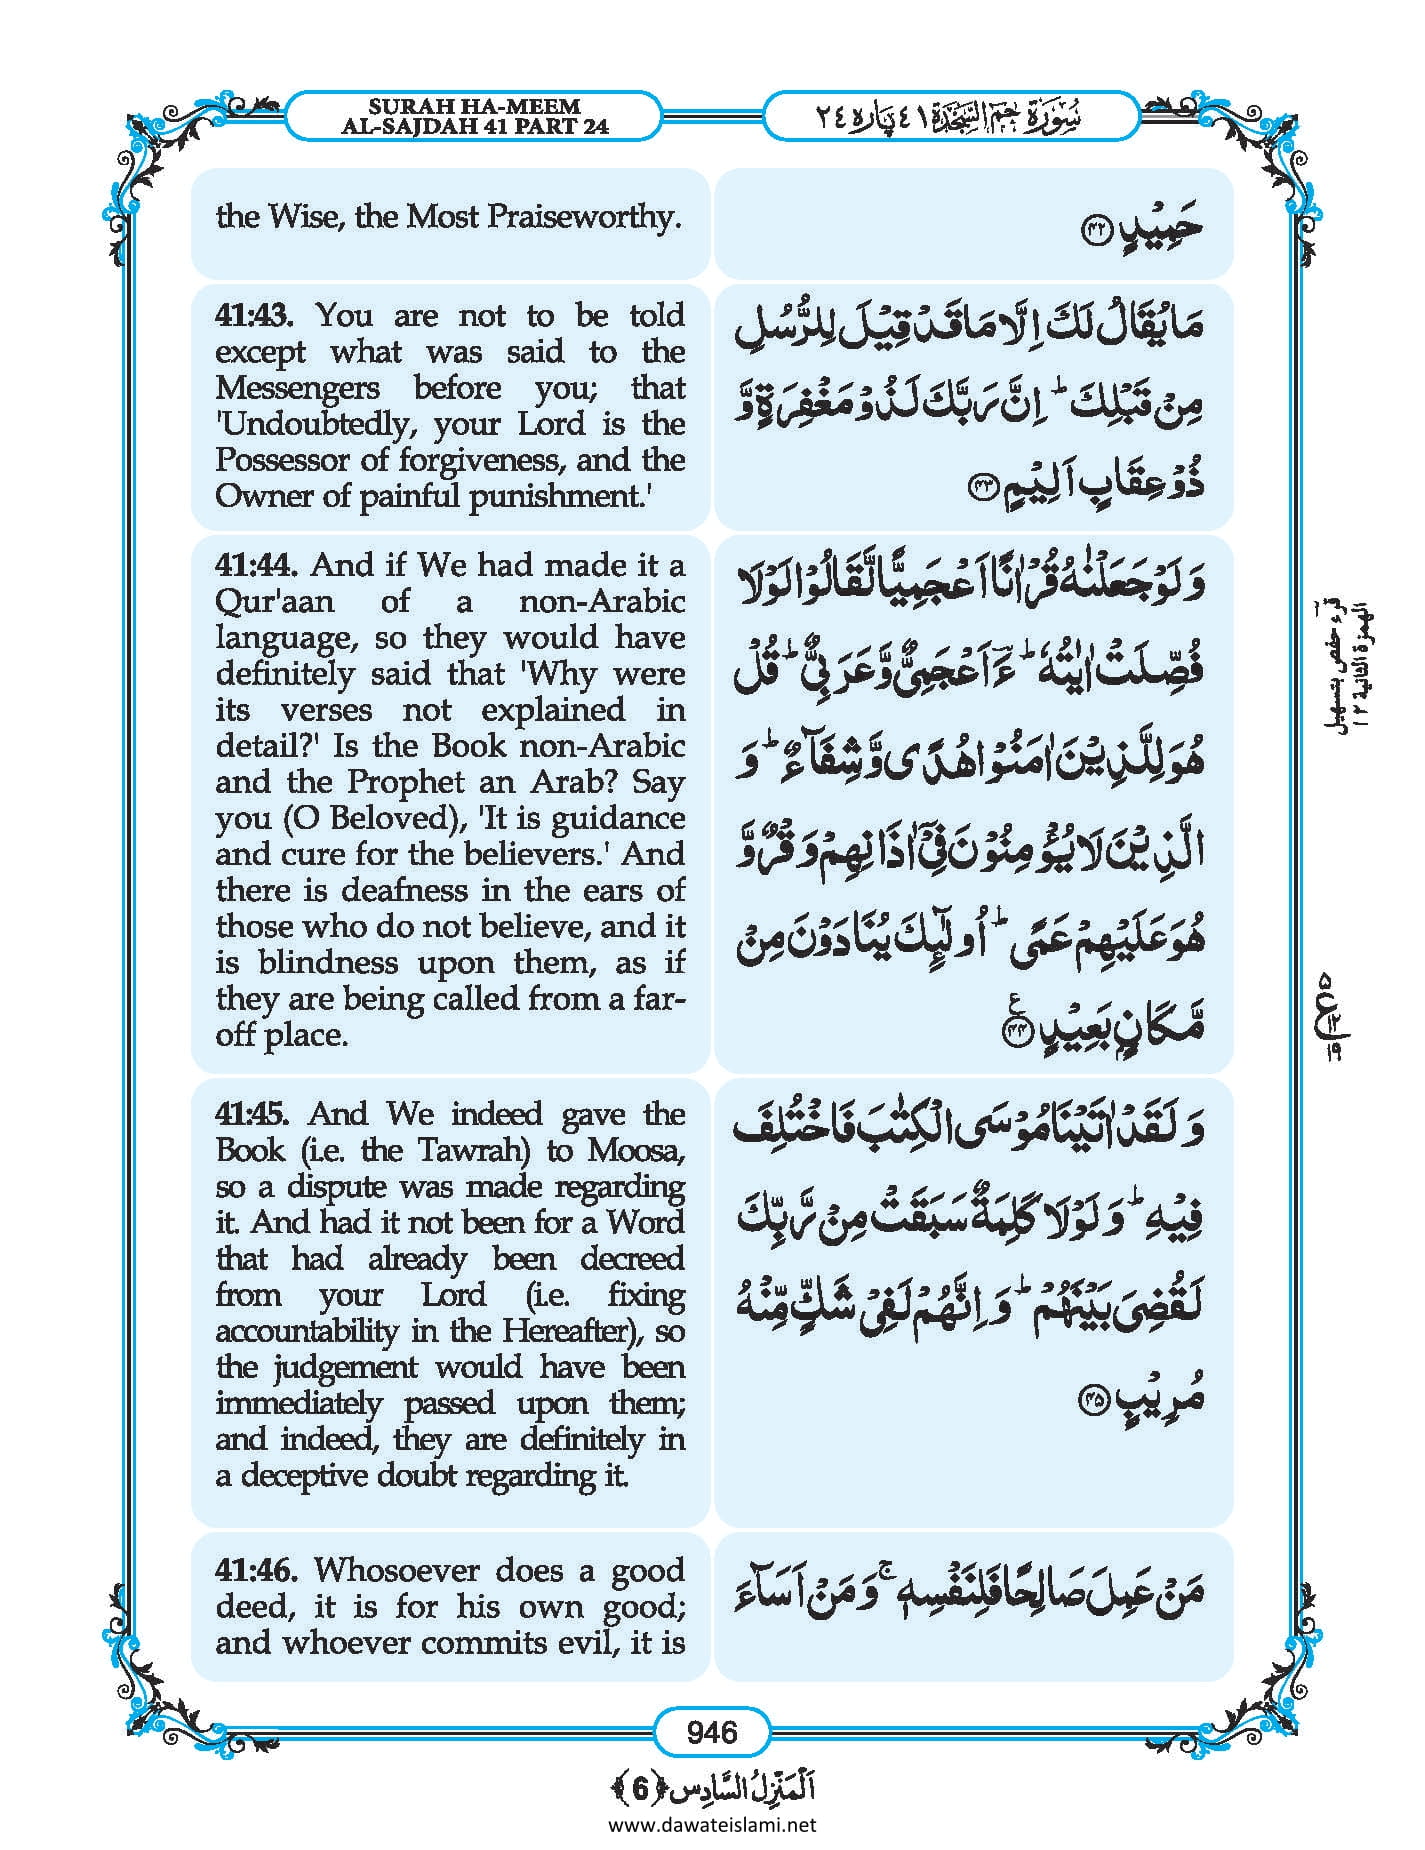 SURAH HA-MEEM
AL-SAJDAH 41 PART 24
سُوْرَةُ حٰمٓ السَّجْدَة ٤١ پارہ ٢٤
the Wise, the Most Praiseworthy.
حَمِیْدٍ ﴿۴۲﴾
41:43. You are not to be told
except what was said to the
Messengers before you; that
'Undoubtedly, your Lord is the
Possessor of forgiveness, and the
Owner of painful punishment.'
مَا یُقَالُ لَكَ اِلَّا مَا قَدْ قِیْلَ لِلرُّسُلِ
مِنْ قَبْلِكَ ؕ اِنَّ رَبَّكَ لَذُوْ مَغْفِرَةٍ وَّ
ذُوْ عِقَابٍ اَلِیْمٍ ﴿۴۳﴾
41:44. And if We had made it a
Qur'aan of a non-Arabic
language, so they would have
definitely said that 'Why were
its verses not explained in
detail?' Is the Book non-Arabic
and the Prophet an Arab? Say
you (O Beloved), 'It is guidance
and cure for the believers.' And
there is deafness in the ears of
those who do not believe, and it
is blindness upon them, as if
they are being called from a far-
off place.
وَ لَوْ جَعَلْنٰهُ قُرْاٰنًا اَعْجَمِیًّا لَّقَالُوْا لَوْ لَا
فُصِّلَتْ اٰیٰتُهٗ ؕ ءَؔاَعْجَمِیٌّ وَّ عَرَبِیٌّ ؕ قُلْ
هُوَ لِلَّذِیْنَ اٰمَنُوْا هُدًی وَّ شِفَآءٌ ؕ وَ
الَّذِیْنَ لَا یُؤْمِنُوْنَ فِیْۤ اٰذَانِهِمْ وَقْرٌ وَّ
هُوَ عَلَیْهِمْ عَمًی ؕ اُولٰٓئِكَ یُنَادَوْنَ مِنْ
مَّكَانٍۭ بَعِیْدٍ ﴿۴۴﴾ ع
قرء حفص بتسهيل
الهمزة الثانية ١٢
41:45. And We indeed gave the
Book (i.e. the Tawrah) to Moosa,
so a dispute was made regarding
it. And had it not been for a Word
that had already been decreed
from your Lord (i.e. fixing
accountability in the Hereafter), so
the judgement would have been
immediately passed upon them;
and indeed, they are definitely in
a deceptive doubt regarding it.
وَ لَقَدْ اٰتَیْنَا مُوْسَی الْكِتٰبَ فَاخْتُلِفَ
فِیْهِ ؕ وَ لَوْ لَا كَلِمَةٌ سَبَقَتْ مِنْ رَّبِّكَ
لَقُضِیَ بَیْنَهُمْ ؕ وَ اِنَّهُمْ لَفِیْ شَكٍّ مِّنْهُ
مُرِیْبٍ ﴿۴۵﴾
41:46. Whosoever does a good
deed, it is for his own good;
and whoever commits evil, it is
مَنْ عَمِلَ صَالِحًا فَلِنَفْسِهٖ ۚ وَ مَنْ اَسَآءَ
946
اَلْمَنْزِلُ السَّادِس ﴿6﴾
www.dawateislami.net